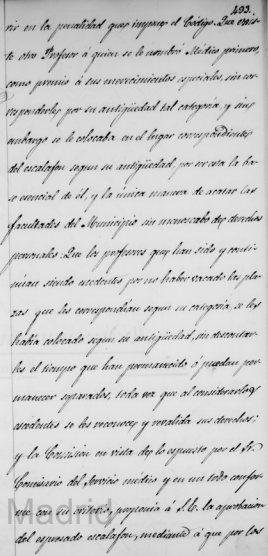 493.
ris en la penalidad que impone el Código. Que exis-
te otro Profesor á quien se le nombró Médico primero,
como premio á sus merecimientos especiales, sin cor-
responderle por su antigüedad tal categoría, y sin
embargo se le colocaba en el lugar correspondiente
del escalafon segun su antigüedad, por ser esta la ba-
se esencial de él, y la única manera de acatar las
facultades del Municipio sin menoscabo de derechos
personales. Que los profesores que han sido y conti-
núan siendo excedentes por no haber vacado las pla-
zas que les correspondian segun su categoría, se les
habia colocado segun su antigüedad, sin descontar-
les el tiempo que han permanecido ó puedan per-
manecer separados, toda vez que al considerarlos
excedentes se les reconoce y revalida sus derechos;
y la Comision en vista de lo expuesto por el Sr.
Comisario del Servicio médico y en un todo confor-
me con su criterio, proponía á S. E. la aprobacion
del expresado escalafon, mediante á que por los
Madrid